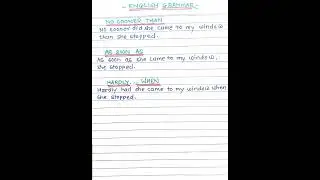 - ENGLISH GRAMMAR -
NO SOONER THAN
No sooner did she came to my window
than she stopped.
AS SOON AS
As soon as she came to my window,
she stopped.
HARDLY WHEN
Hardly had she came to my window when
she stopped.